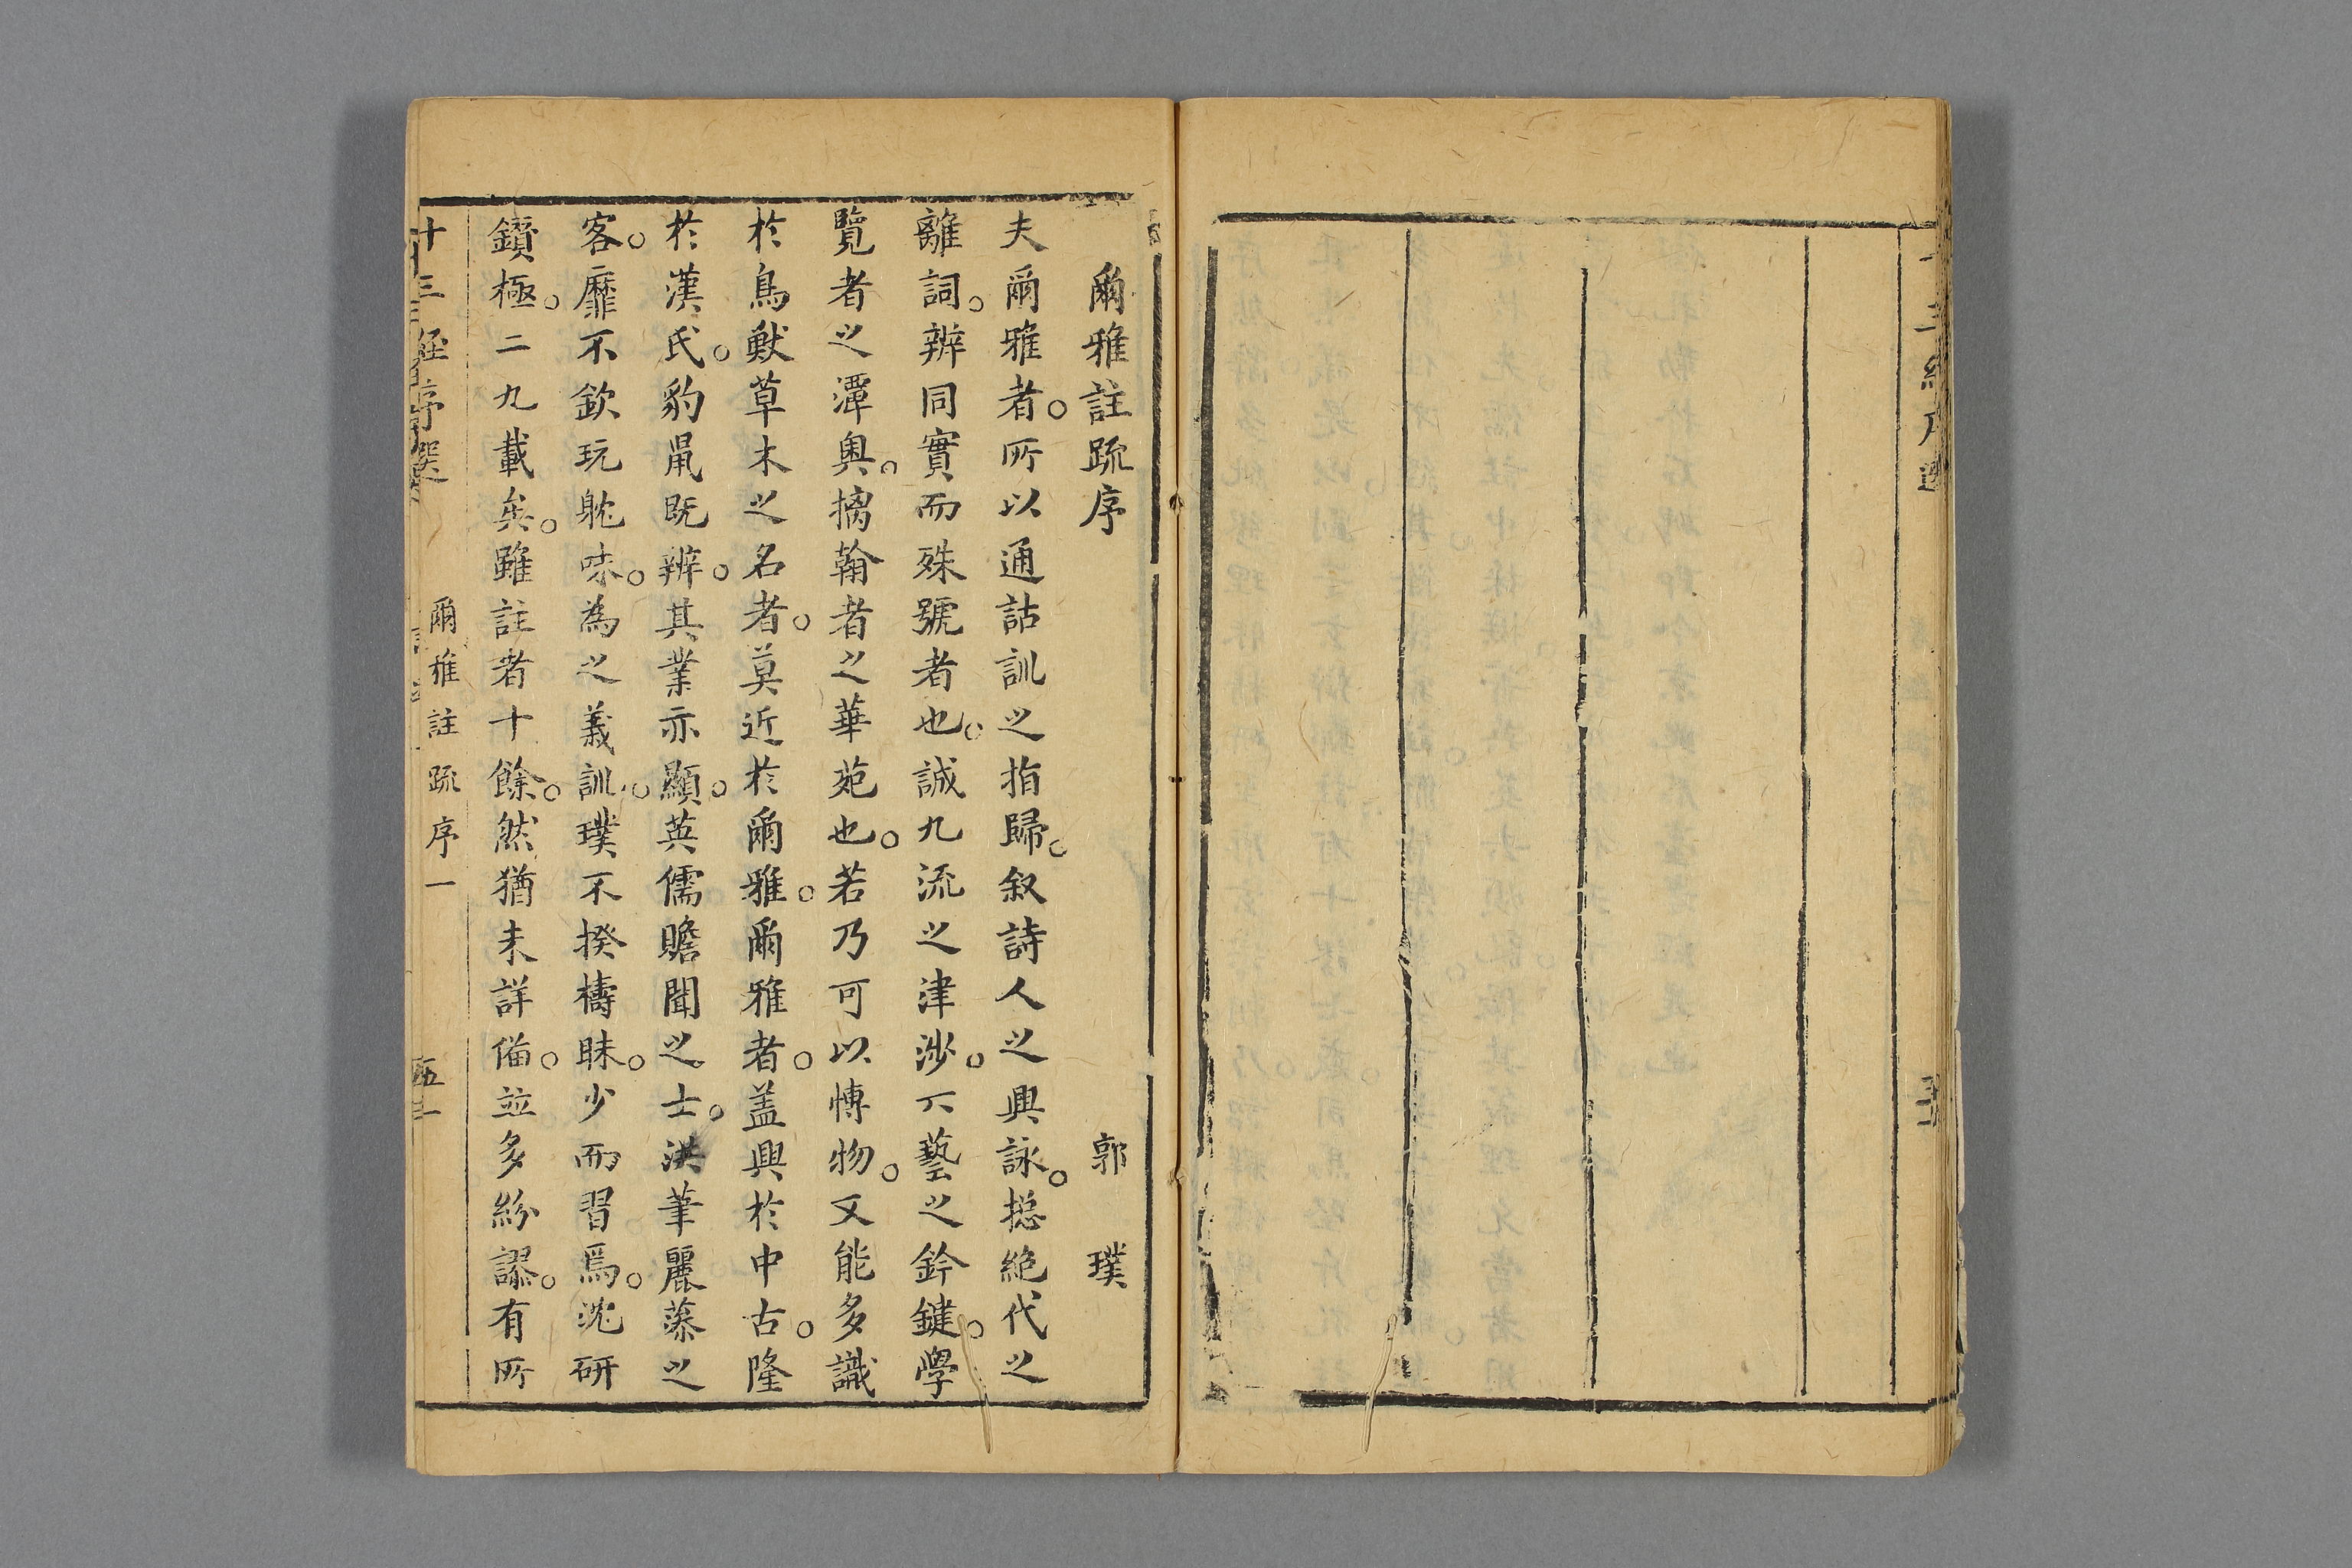 爾雅註疏序 郭璞
夫爾雅者。所以通詁訓之指歸。叙詩人之興詠。揔絶代之
離詞。辨同實而殊號者也。誠九流之津涉。六藝之鈐鍵。學
覽者之潭奥。摛翰者之華苑也。若乃可以愽物。又能多識
於鳥獸草木之名者。莫近於爾雅。爾雅者。盖興於中古。隆
於漢氏。豹鼠既辨。其業亦顯。英儒贍聞之士。洪筆麗藻之
客。靡不欽玩躭味。為之義訓。璞不揆檮昧。少而習焉。沈研
鑽極。二九載矣。雖註者十餘。然猶未詳俻。竝多紛謬。有所
十三經序選 爾雅註疏序一